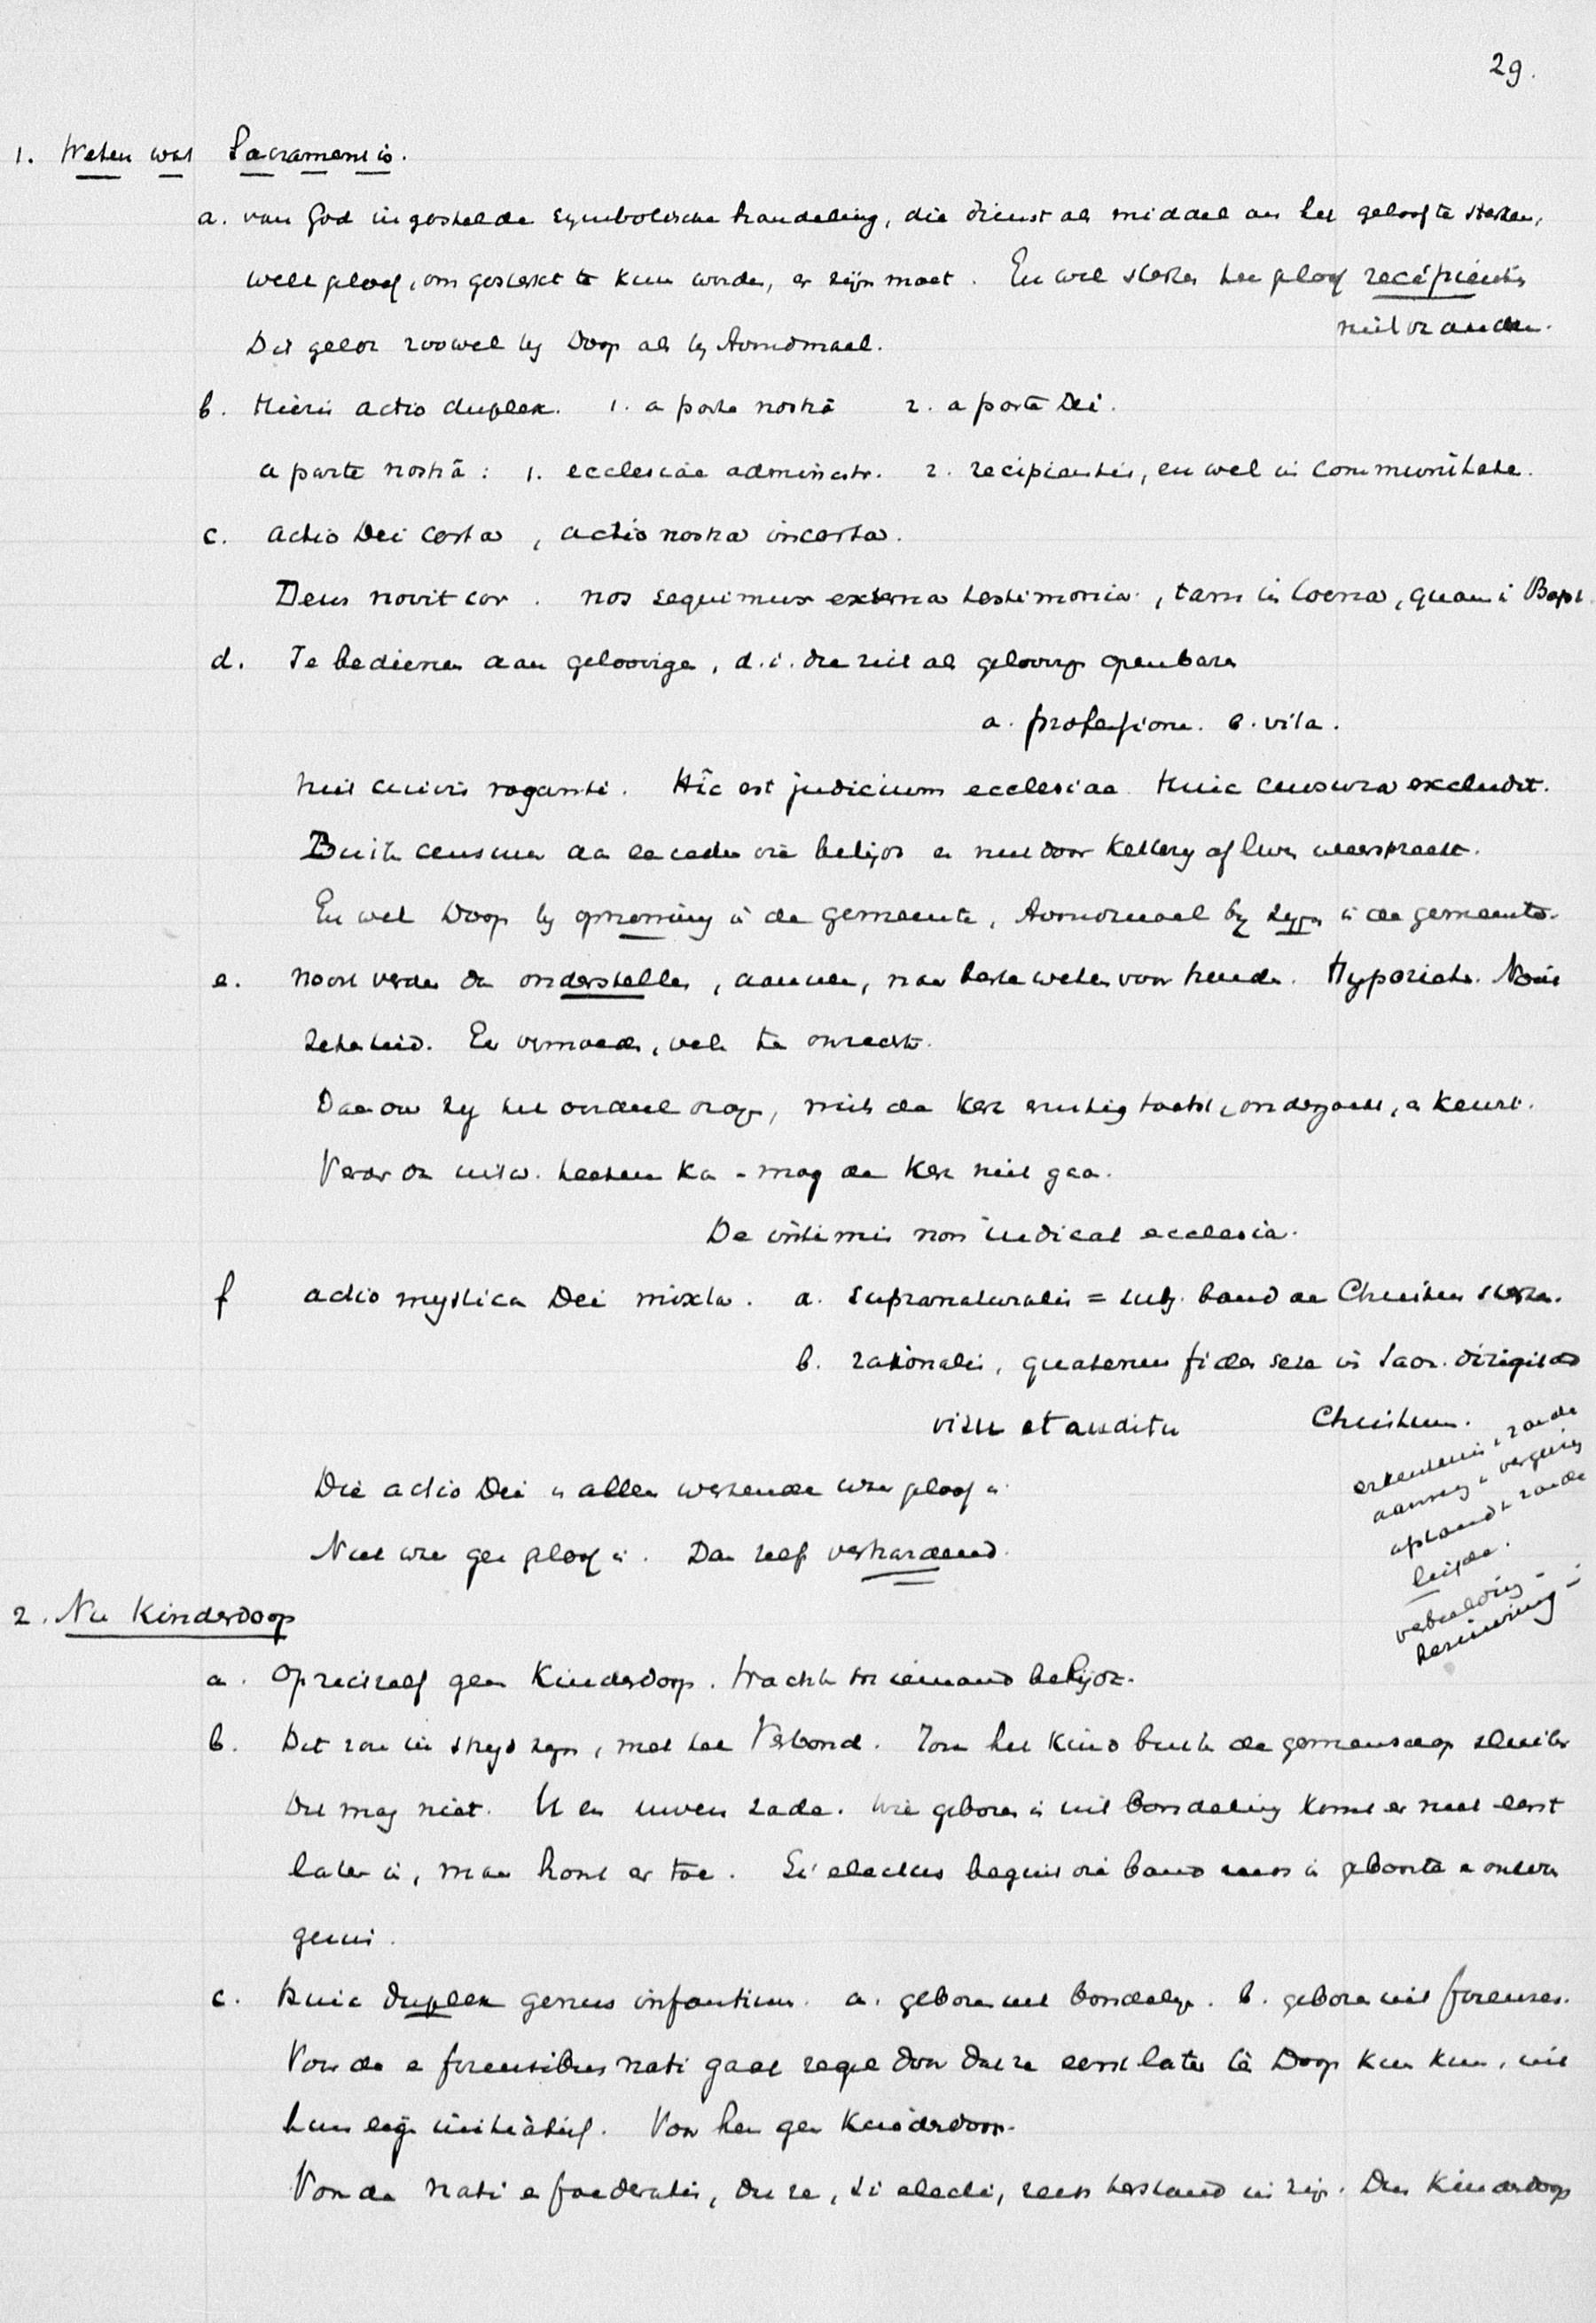 29.
1. Weten wat Sacrament is.
a. van God ingestelde symbolische handeling, die dienst als middel om het geloof te sterken,
welk geloof, om gesterkt te kunn worden, er zijn moet. En wel sterken het geloof recipientis
niet v anderen.
Dit geldt zoowel bij Doop als bij Avondmaal.
b. Hierin actio duplex. 1. a parte nostrâ 2. a parte Dei.
a parte nostrâ: 1. ecclesiae administr. 2. recipientis, en wel in communitate.
c. actio Dei certa, actio nostra incerta.
Deus novit cor. nos sequimur externa testimonia, tam in Coena, quam i Bapt.
d. Te bedienen aan geloovigen, d.i. die zich als geloovig openbaren
a. professione. b. vita.
niet cuivis roganti. Hîc est judicium ecclesiae. Huic censura excludit.
Buiten censura aan ieder die belijdt en niet door ketterij of leven weerspreekt.
En wel Doop bij opneming in de gemeente, Avondmaal bij zijn in de gemeente.
e. Nooit verder dan onderstellen, aannem, naar beste weten voor houden. Hypocriete. Nooit
zekerheid. En vermoeden, vaak ten onrechte.
Daarom zij het oordeel oogen, mits de Kerk ernstig toetst, onderzoekt, en keurt.
Verder dan uitw. teeken kan - mag de Kerk niet gaan.
De intimis non iudicat ecclesia.
f actio mystica Dei mixta. a. supranaturalis = subj. band aan Christus sterken.
b. rationalis, quatenus fides sese in Sacr. dirigit ad
visu et auditu Christum.
erkentenis v zonde
aanneming v vergeving
opstand v zonde
liefde.
verbeelding -
herinnering -
Die actio Dei is alleen werkende waar geloof is.
Niet waar geen geloof is. Dan zelf verhardend.
2. Nu Kinderdoop
a. Op zichzelf geen Kinderdoop. Wachten tot iemand belijdt.
b. Dit zou in strijd zijn, met het Verbond. Zou het kind buiten de gemeenschap sluiten
Dit mag niet. U en uwen zade. Wie geboren is uit bondeling komt er niet eerst
later in, maar hoort er toe. Si electus begint die band reeds in geboorte en ontvan
genis.
c. Huic duplex genus infantium. a. geboren uit bondelingen. b. geboren uit forenses.
Voor de e forensibus nati gaat regel door dat ze eerst later tot Doop kunnen komen, uit
hun eigen initiatief. Voor hen geen Kinderdoop.
Voor de nati e foederatis, die ze, si electi, reeds bestaand in zijn. Dus Kinderdoop